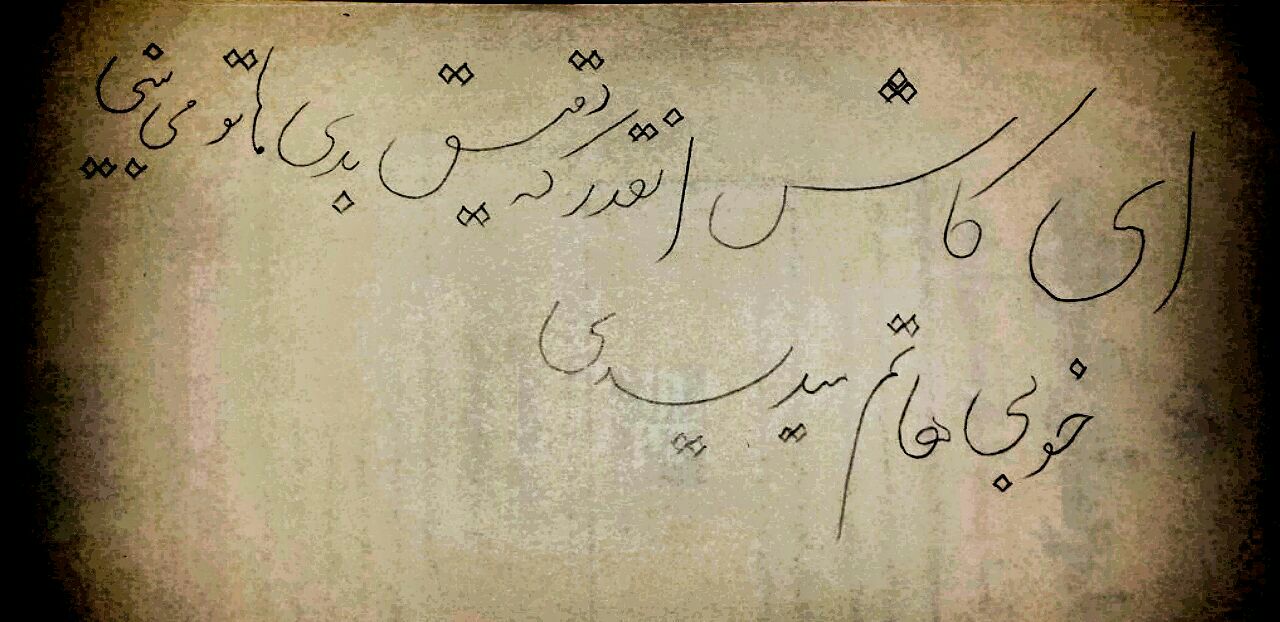 ای کاش انقدر که دقیق بدی هاتو می بینی
خوبی هاتم میدیدی